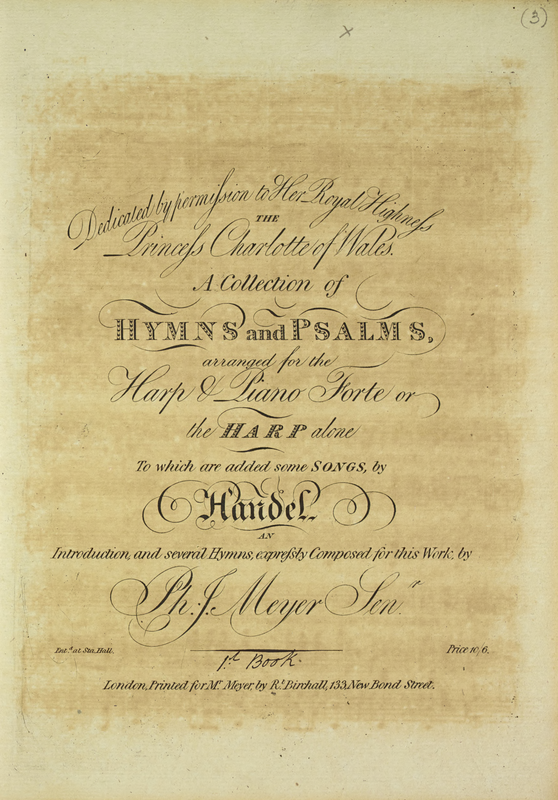 (3)
x
Dedicated by permiſsion to Her Royal Highneſs
THE
Princeſs Charlotte of Wales.
A Collection of
HYMNS and PSALMS,
arranged for the
Harp & Piano Forte or
the HARP alone
To which are added some SONGS, by
Handel.
AN
Introduction, and several Hymns, expreſsly Composed for this Work, by
Ph. J. Meyer Senr.
Ent.d at Sta. Hall.
Price 10/6.
1st Book.
London, Printed for Mr. Meyer, by Rt. Birchall, 133, New Bond Street.